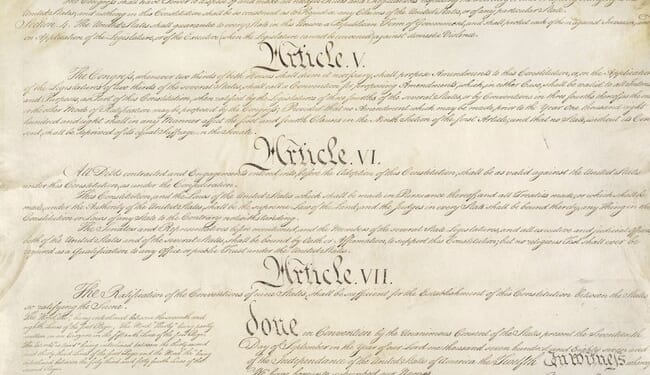 Section 4. The United States shall guarantee to every State in this Union a Republican Form of Government, and shall protect each of them against Invasion; and
on Application of the Legislature, or of the Executive (when the Legislature cannot be convened) against domestic Violence.
Article. V.
The Congress, whenever two thirds of both Houses shall deem it necessary, shall propose Amendments to this Constitution, or, on the Application
of the Legislatures of two thirds of the several States, shall call a Convention for proposing Amendments, which, in either Case, shall be valid to all Intents
and Purposes, as Part of this Constitution, when ratified by the Legislatures of three fourths of the several States, or by Conventions in three fourths thereof, as the one
or the other Mode of Ratification may be proposed by the Congress; Provided that no Amendment which may be made prior to the Year One thousand eight
hundred and eight shall in any Manner affect the first and fourth Clauses in the Ninth Section of the first Article; and that no State, without its Con
sent, shall be deprived of its equal Suffrage in the Senate.
Article. VI.
All Debts contracted and Engagements entered into, before the Adoption of this Constitution, shall be as valid against the United States
under this Constitution, as under the Confederation.
This Constitution, and the Laws of the United States which shall be made in Pursuance thereof; and all Treaties made, or which shall be
made, under the Authority of the United States, shall be the supreme Law of the Land; and the Judges in every State shall be bound thereby, any Thing in the
Constitution or Laws of any State to the Contrary notwithstanding.
The Senators and Representatives before mentioned, and the Members of the several State Legislatures, and all executive and judicial Officers,
both of the United States and of the several States, shall be bound by Oath or Affirmation, to support this Constitution; but no religious Test shall ever be
required as a Qualification to any Office or public Trust under the United States.
Article. VII.
The Ratification of the Conventions of nine States, shall be sufficient for the Establishment of this Constitution between the States
so ratifying the Same.
done in Convention by the Unanimous Consent of the States present the Seventeenth
Day of September in the Year of our Lord one thousand seven hundred and Eighty seven and
of the Independance of the United States of America the Twelfth In witness whereof
We have hereunto subscribed our Names,